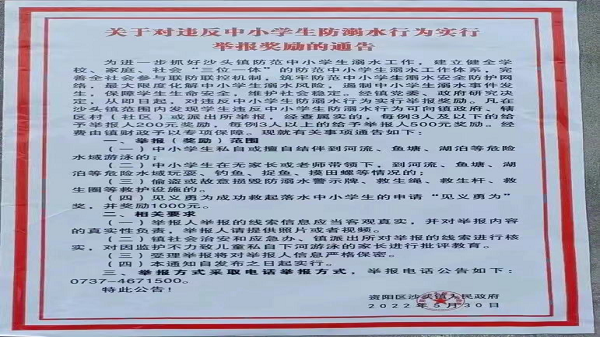 关于对违反中小学生防溺水行为实行
举报奖励的通告
为进一步抓好沙头镇防范中小学生溺水工作，建立健全学
校、家庭、社会“三位一体”的防范中小学生溺水工作体系，完
善全社会参与联防联控机制，筑牢防范中小学生溺水安全防护网
络，最大限度化解中小学生溺水风险，遏制中小学生溺水事件发
生，保障学生生命安全，维护社会稳定。经镇党委、政府研究决
定，从即日起，对违反中小学生防溺水行为实行举报奖励。凡在
沙头镇范围内发现学生违反中小学生防溺水行为可向镇政府、辖
区村（社区）或派出所举报，经查属实的，每例3人及以下的给
予举报人200元奖励，每例3人以上的给予举报人500元奖励。经
费由镇财政予以专项保障。现就有关事项通告如下：
一、举报（奖励）范围
（一）中小学生私自或擅自结伴到河流、鱼塘、湖泊等危险
水域游泳的；
（二）中小学生在无家长或老师带领下，到河流、鱼塘、湖
泊等危险水域玩耍、钓鱼、捉鱼、摸田螺等情况的；
（三）偷盗或故意损毁防溺水警示牌、救生绳、救生杆、救
生圈等救护设施的。
（四）见义勇为成功救起落水中小学生的申请“见义勇为”
奖，并奖励1000元。
二、相关要求
（一）举报人举报的线索信息应当客观真实，并对举报内容
的真实性负责，举报人请提供照片或者视频。
（二）镇社会治安和应急办、镇派出所对举报的线索进行核
实，对因监护不力致儿童私自下河游泳的家长进行批评教育。
（三）受理举报将对举报人信息严格保密。
（四）本通知自发布之日起实行。
三、举报方式采取电话举报方式，举报电话公告如下：
0737-4671500。
特此公告！
资阳区沙头镇人民政府
2022年5月30日